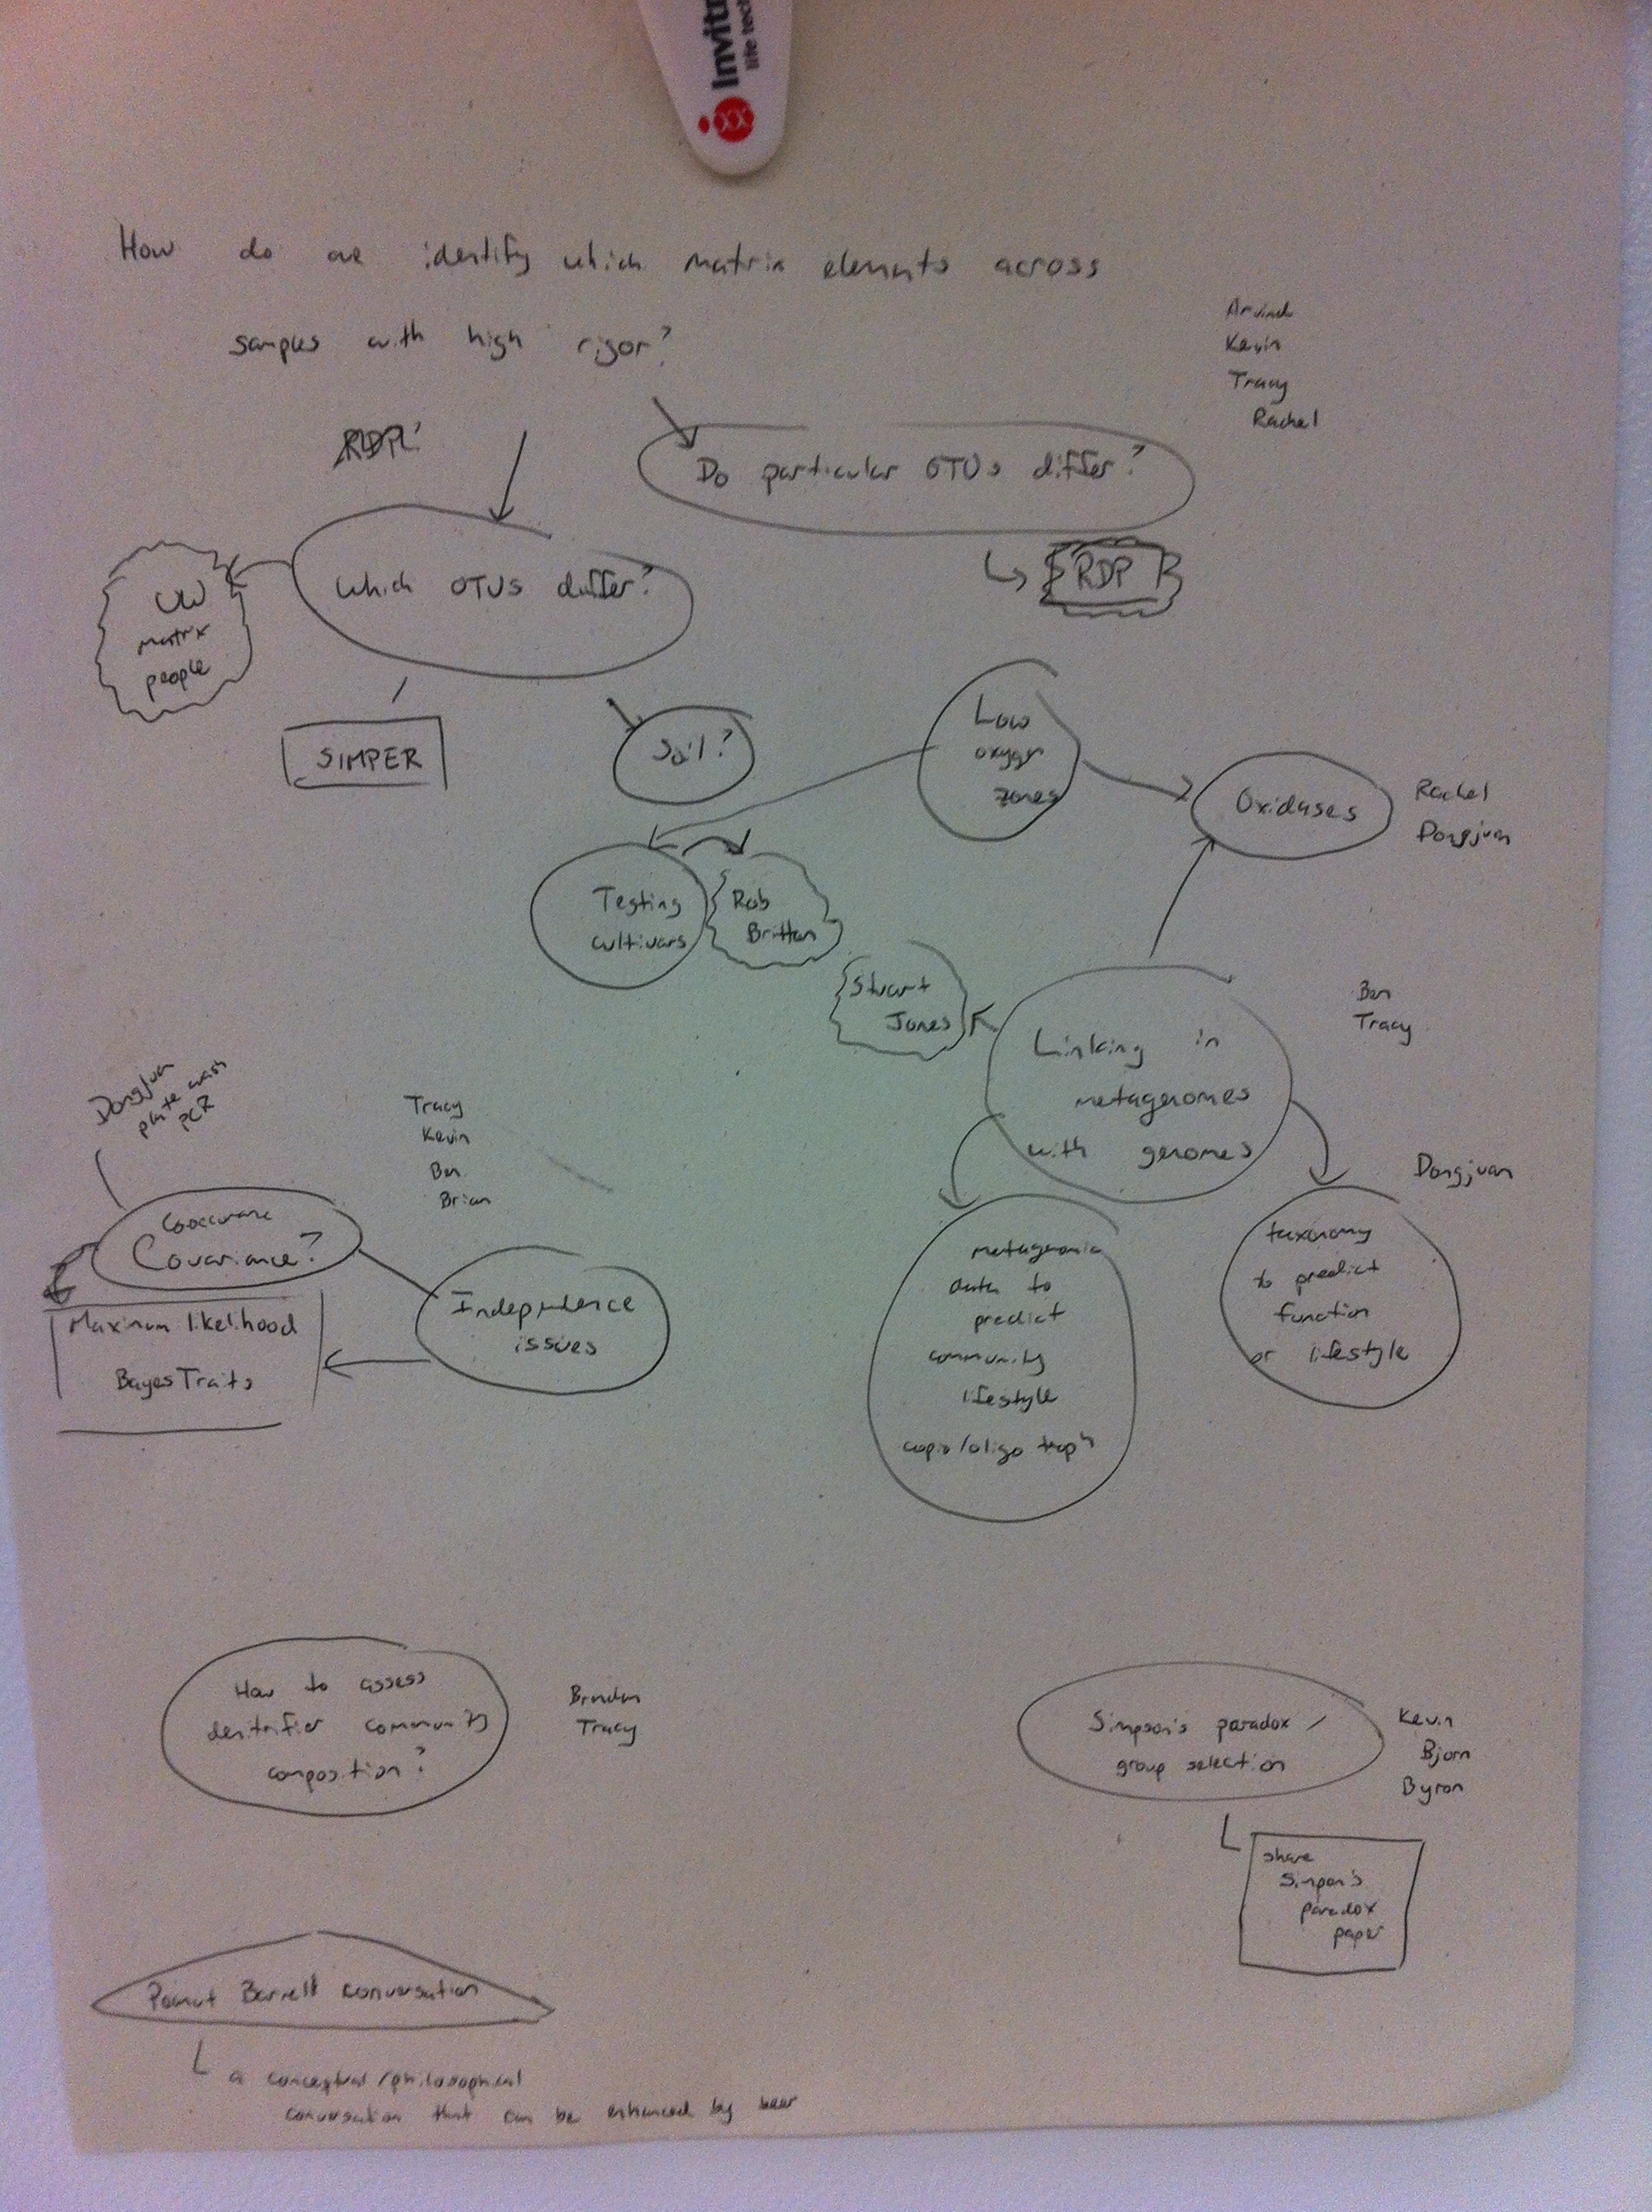 Invitr
life tech
How do we identify which matrix elements across
samples with high rigor?
Arvind
Kevin
Tracy
Rachel
RDP?
Do particular OTUs differ?
RDP
Which OTUs differ?
UW
matrix
people
SIMPER
Soil?
Low
oxygen
zones
Oxidases
Rachel
Dongjuan
Testing
cultivars
Rob
Britton
Stuart
Jones
Linking in
metagenomes
with genomes
Ben
Tracy
Dongjuan
plate wash
PCR
Tracy
Kevin
Ben
Brian
Cooccurance
Covariance?
Independence
issues
Maximum likelihood
BayesTraits
metagenomic
data to
predict
community
lifestyle
copio/oligo troph
Dongjuan
taxonomy
to predict
function
or lifestyle
How to assess
denitrifier community
composition?
Brendan
Tracy
Simpson's paradox /
group selection
Kevin
Bjorn
Byron
share
Simpson's
paradox
paper
Peanut Barrell conversation
a conceptual/philosophical
conversation that can be enhanced by beer